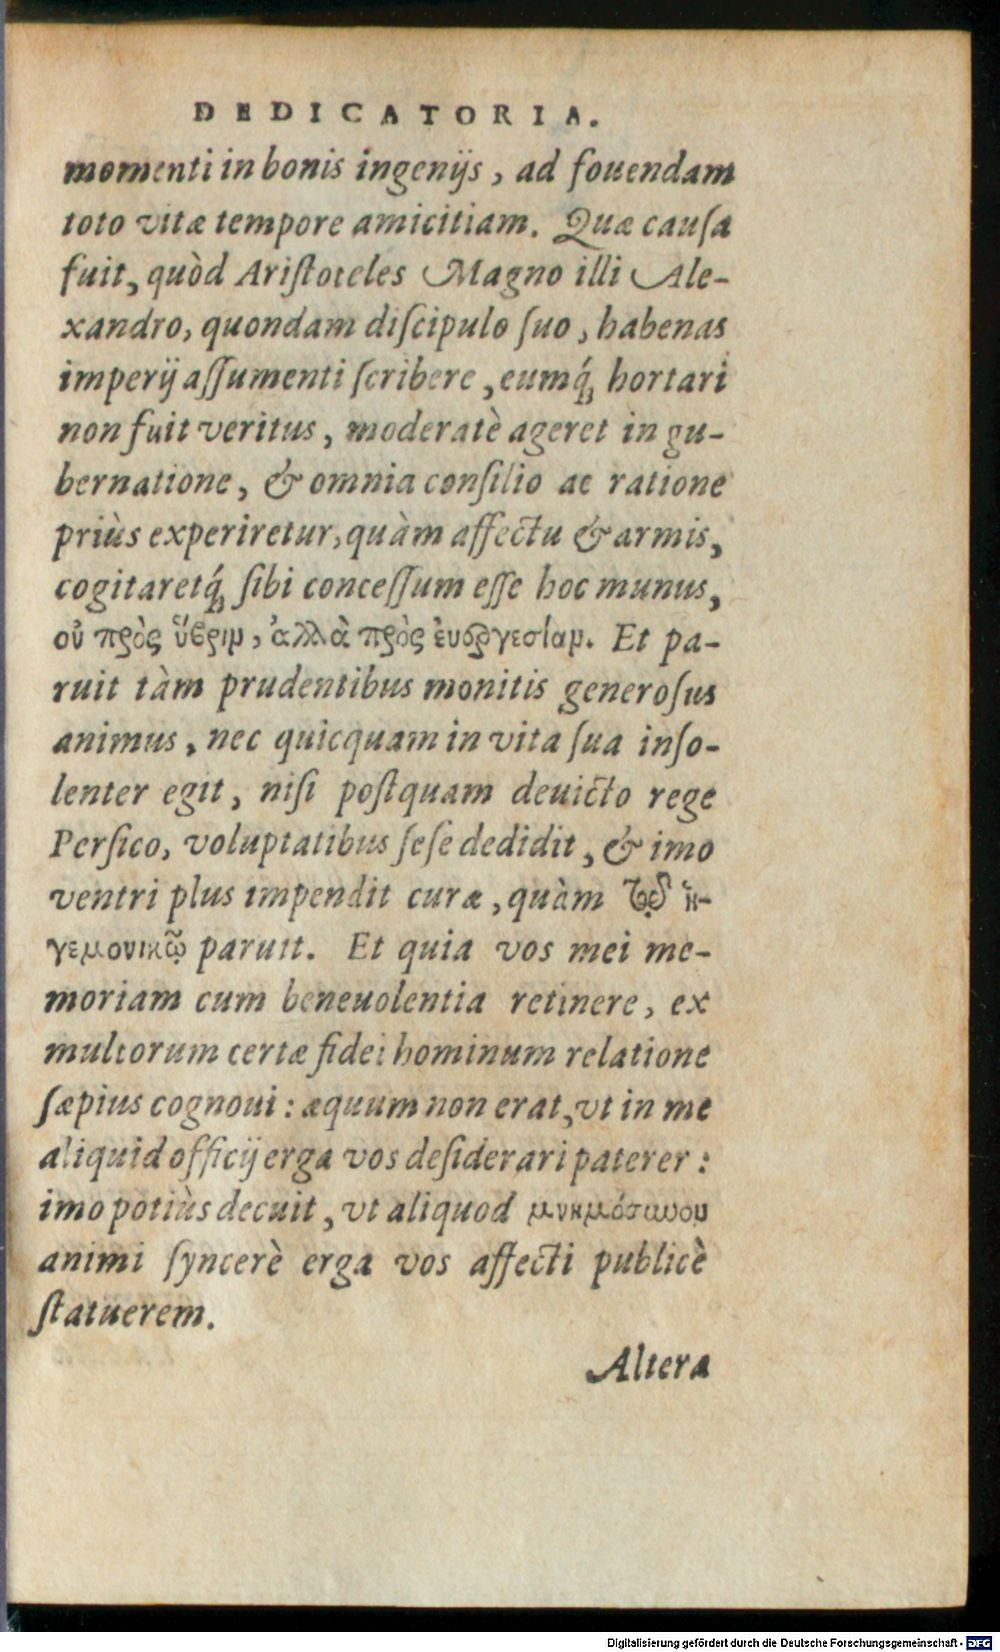 DEDICATORIA.
momenti in bonis ingenijs, ad fouendam
toto vitæ tempore amicitiam. Quæ causa
fuit, quòd Aristoteles Magno illi Ale-
xandro, quondam discipulo suo, habenas
imperij assumenti scribere, eumq́; hortari
non fuit veritus, moderatè ageret in gu-
bernatione, & omnia consilio ac ratione
priùs experiretur, quàm affectu & armis,
cogitaretq́; sibi concessum esse hoc munus,
οὐ πρὸς ὕβριμ, ἀλλὰ πρὸς ἐυεργεσίαμ. Et pa-
ruit tàm prudentibus monitis generosus
animus, nec quicquam in vita sua inso-
lenter egit, nisi postquam deuicto rege
Persico, voluptatibus sese dedidit, & imo
ventri plus impendit curæ, quàm τῷ ἡ-
γεμονικῷ paruit. Et quia vos mei me-
moriam cum beneuolentia retinere, ex
multorum certæ fidei hominum relatione
sæpius cognoui: æquum non erat, vt in me
aliquid officij erga vos desiderari paterer:
imo potiùs decuit, vt aliquod μνημόσυνου
animi syncerè erga vos affecti publicè
statuerem.
Altera
Digitalisierung gefördert durch die Deutsche Forschungsgemeinschaft - DFG